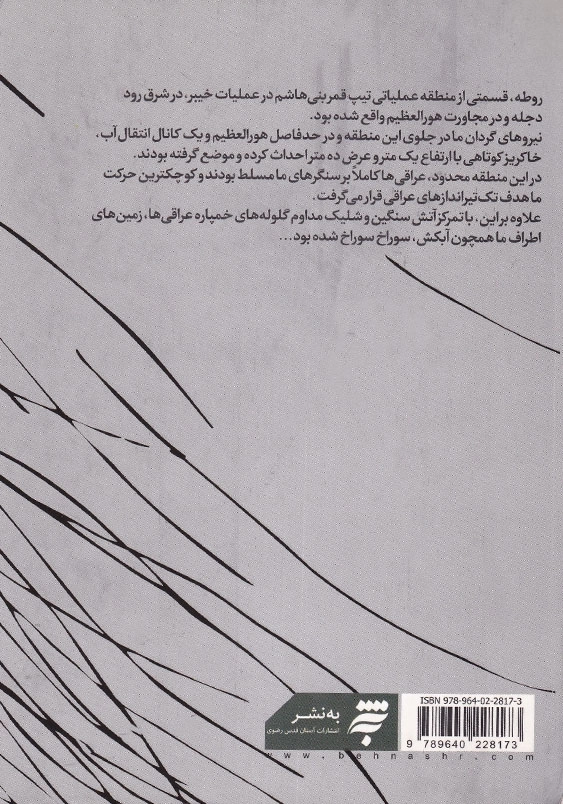 روطه، قسمتی از منطقه عملیاتی تیپ قمربنی‌هاشم در عملیات خیبر، در شرق رود
دجله و در مجاورت هورالعظیم واقع شده بود.
نیروهای گردان ما در جلوی این منطقه و در حدفاصل هورالعظیم و یک کانال انتقال آب،
خاکریز کوتاهی با ارتفاع یک متر و عرض ده متر احداث کرده و موضع گرفته بودند.
در این منطقه محدود، عراقی‌ها کاملاً بر سنگرهای ما مسلط بودند و کوچکترین حرکت
ما هدف تک‌تیراندازهای عراقی قرار می‌گرفت.
علاوه بر این، با تمرکز آتش سنگین و شلیک مداوم گلوله‌های خمپاره عراقی‌ها، زمین‌های
اطراف ما همچون آبکش، سوراخ سوراخ شده بود...
ISBN 978-964-02-2817-3
به‌نشر
انتشارات آستان قدس رضوی
9 789640 228173
www.behnashr.com